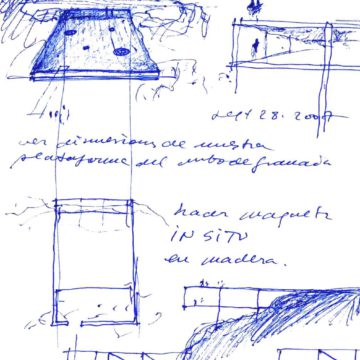 Sept 28. 2007
ver dimensions de nuestra
plataforma del cubo de granada
hacer maqueta
IN SITU
en madera.